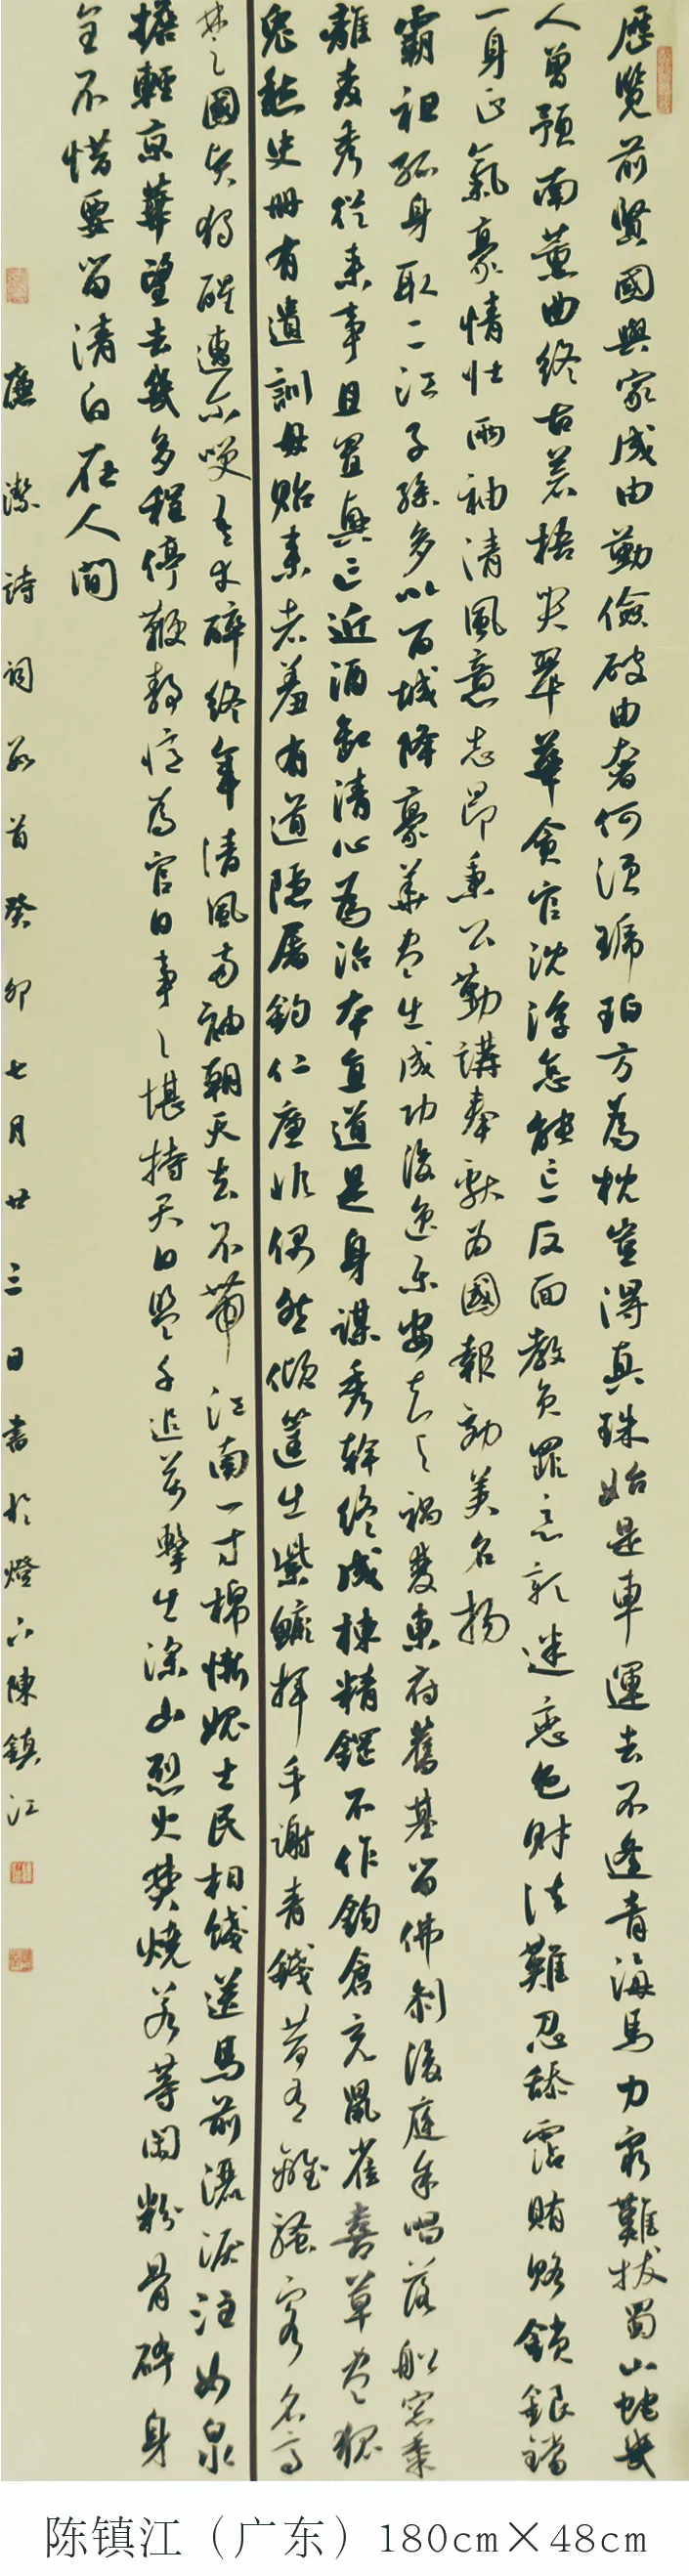 歷覽前賢國與家成由勤儉破由奢何須琥珀方為枕豈得真珠始是車運去不逢青海馬力窮難拔蜀山蛇幾
人曾預南薰曲終古蒼梧哭翠華貪官沈浮怎能忘反面教員罪惡彰迷戀色財法難忍舔霑賄賂鎖銀鐺
一身正氣豪情壯兩袖清風意志昂秉公勤講奉獻為國報効美名揚
霸祖孤身取二江子孫多以百城降豪華盡出成功後逸樂安知與禍雙東府舊基留佛剎後庭餘唱落船窗黍
離麥秀從來事且置興亡近酒缸清心為治本直道是身謀秀幹終成棟精鋼不作鉤倉充鼠雀喜草盡狐
兔愁史冊有遺訓毋貽來者羞有道隱屠釣仁廉非偶然傾筐出紫鱖揮手謝青錢昔有離騷客名高
楚國獨醒遭尔笑吾亦醉終年清風兩袖朝天去不帶江南一寸棉慚愧士民相餞送馬前灑淚注如泉
擔輕京華望去幾多程停鞭靜憶為官日事〻堪持天日盟千追萬擊出深山烈火焚燒若等閑粉骨碎身
全不惜要留清白在人間
廉潔詩詞數首癸卯七月廿三日書於燈下陳鎮江
陈镇江（广东）180cm×48cm